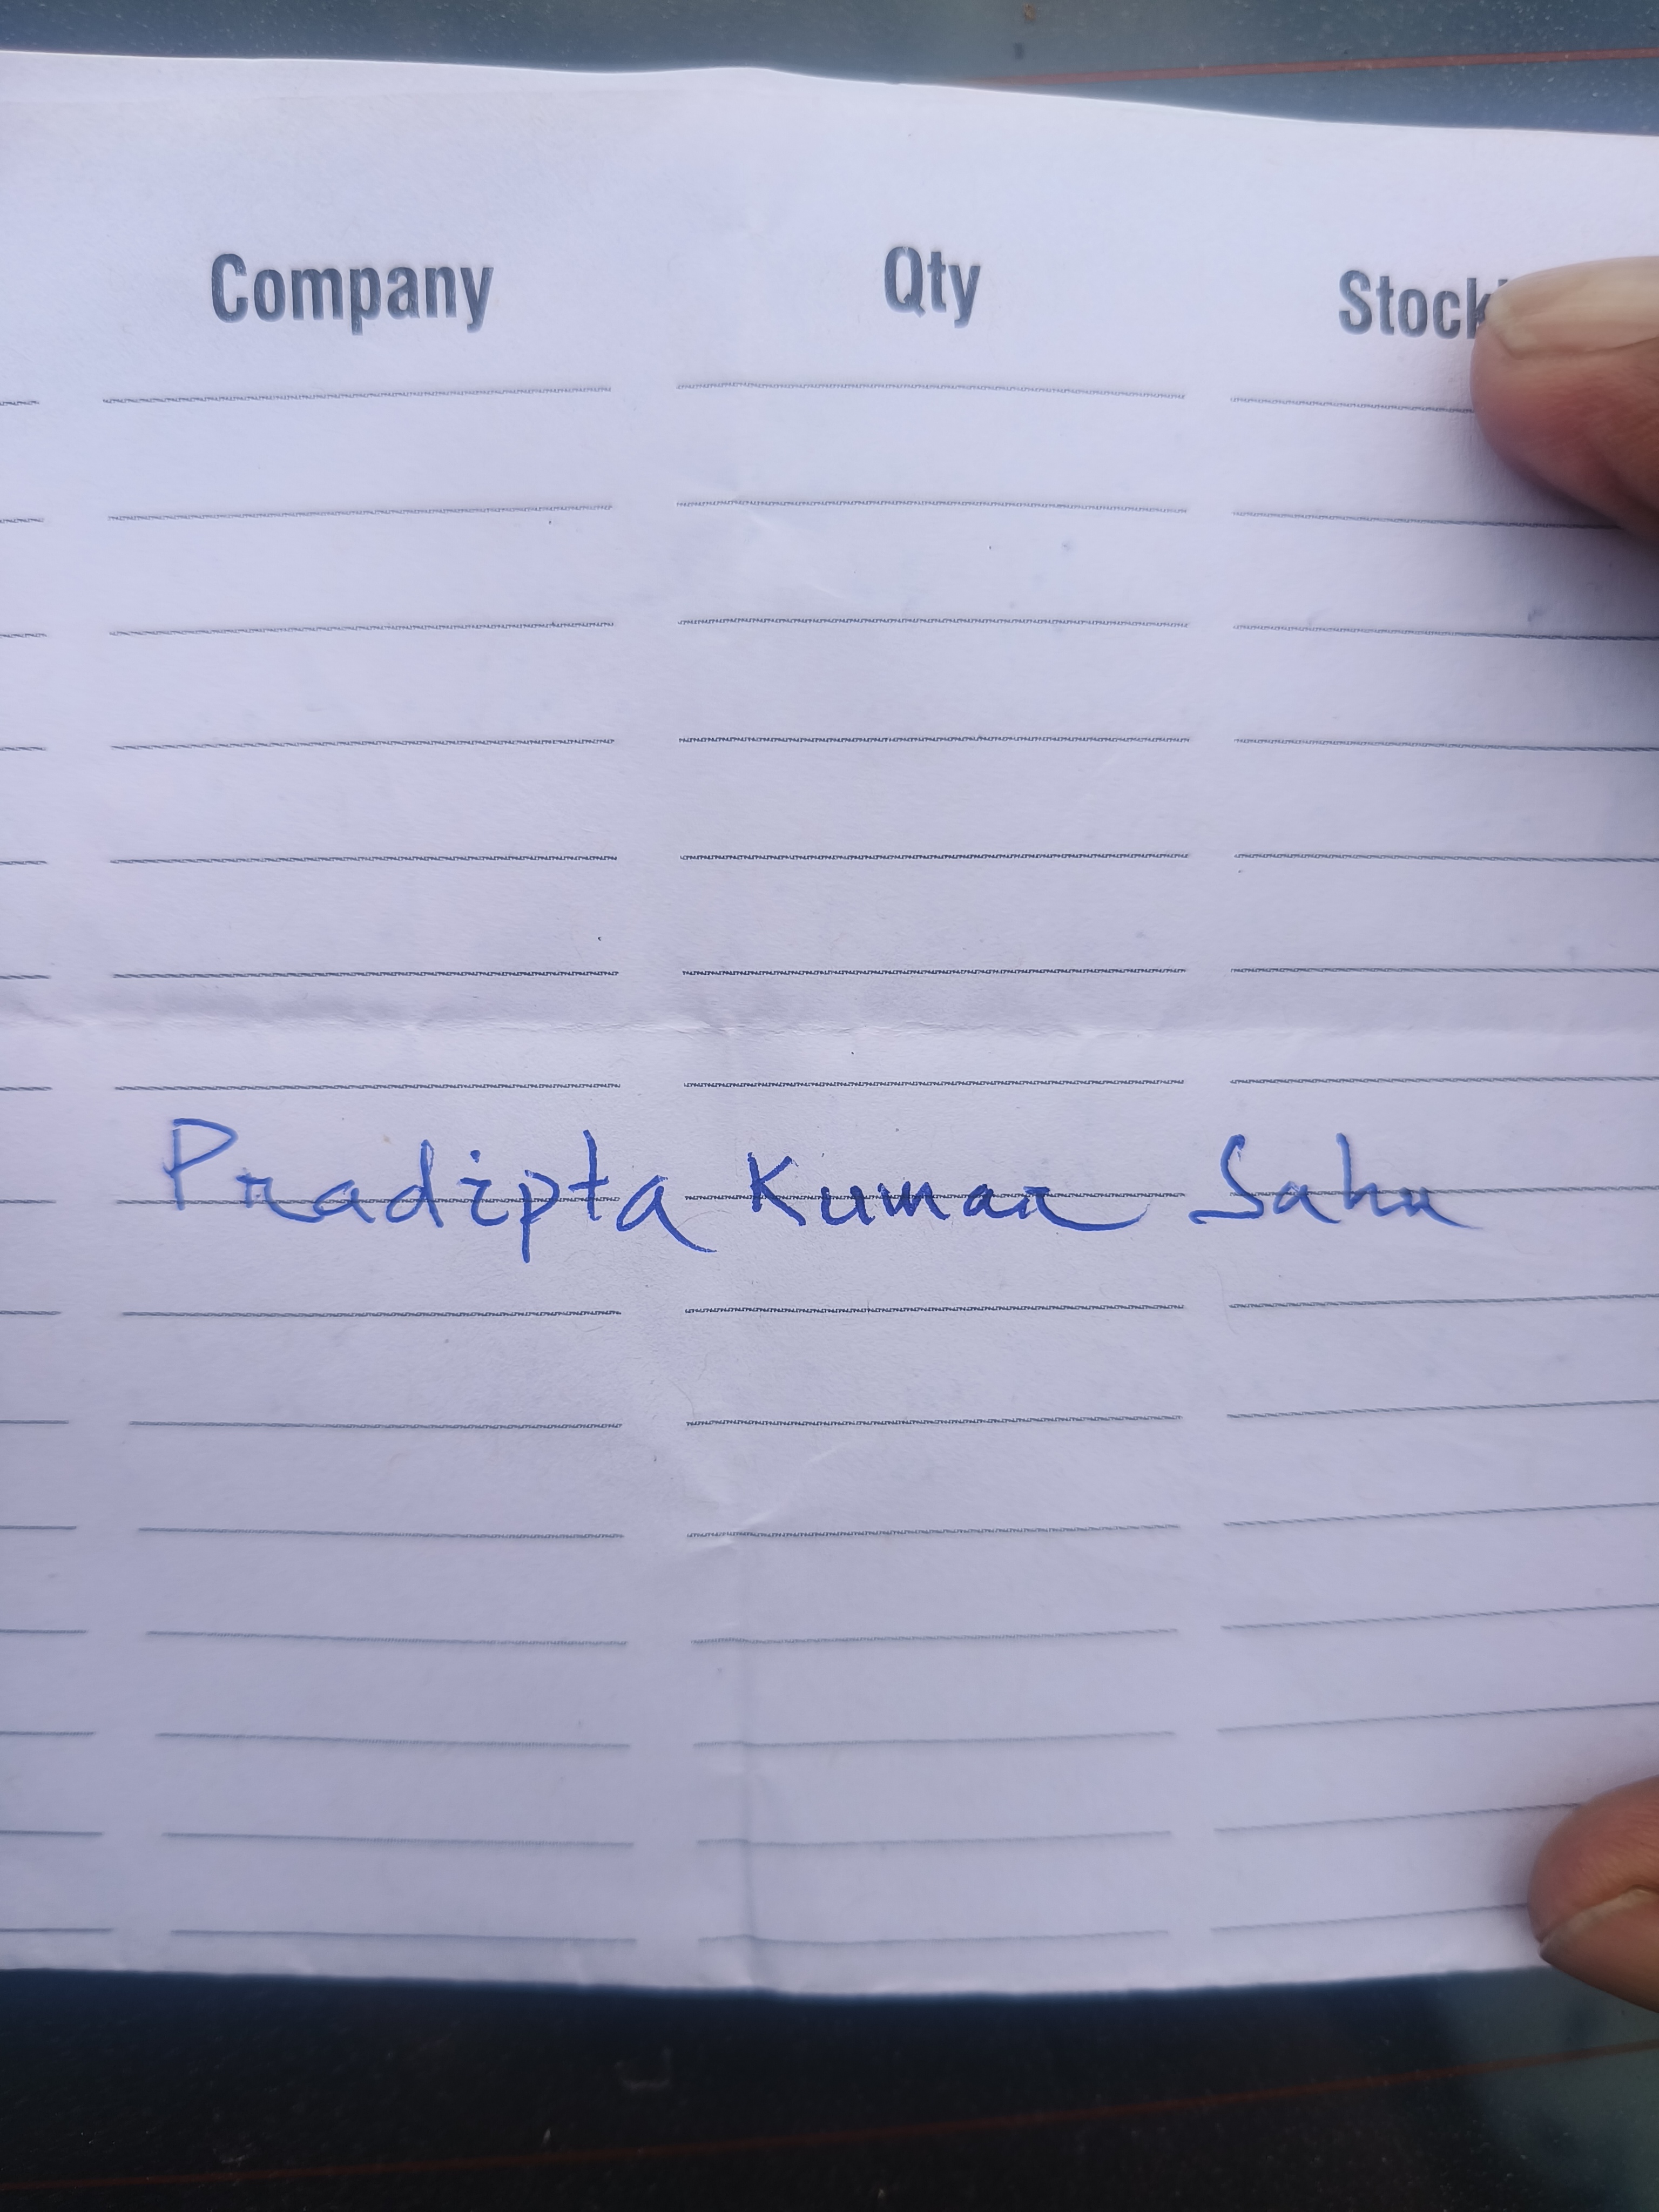 Company Qty Stock
Pradipta Kumar Sahu